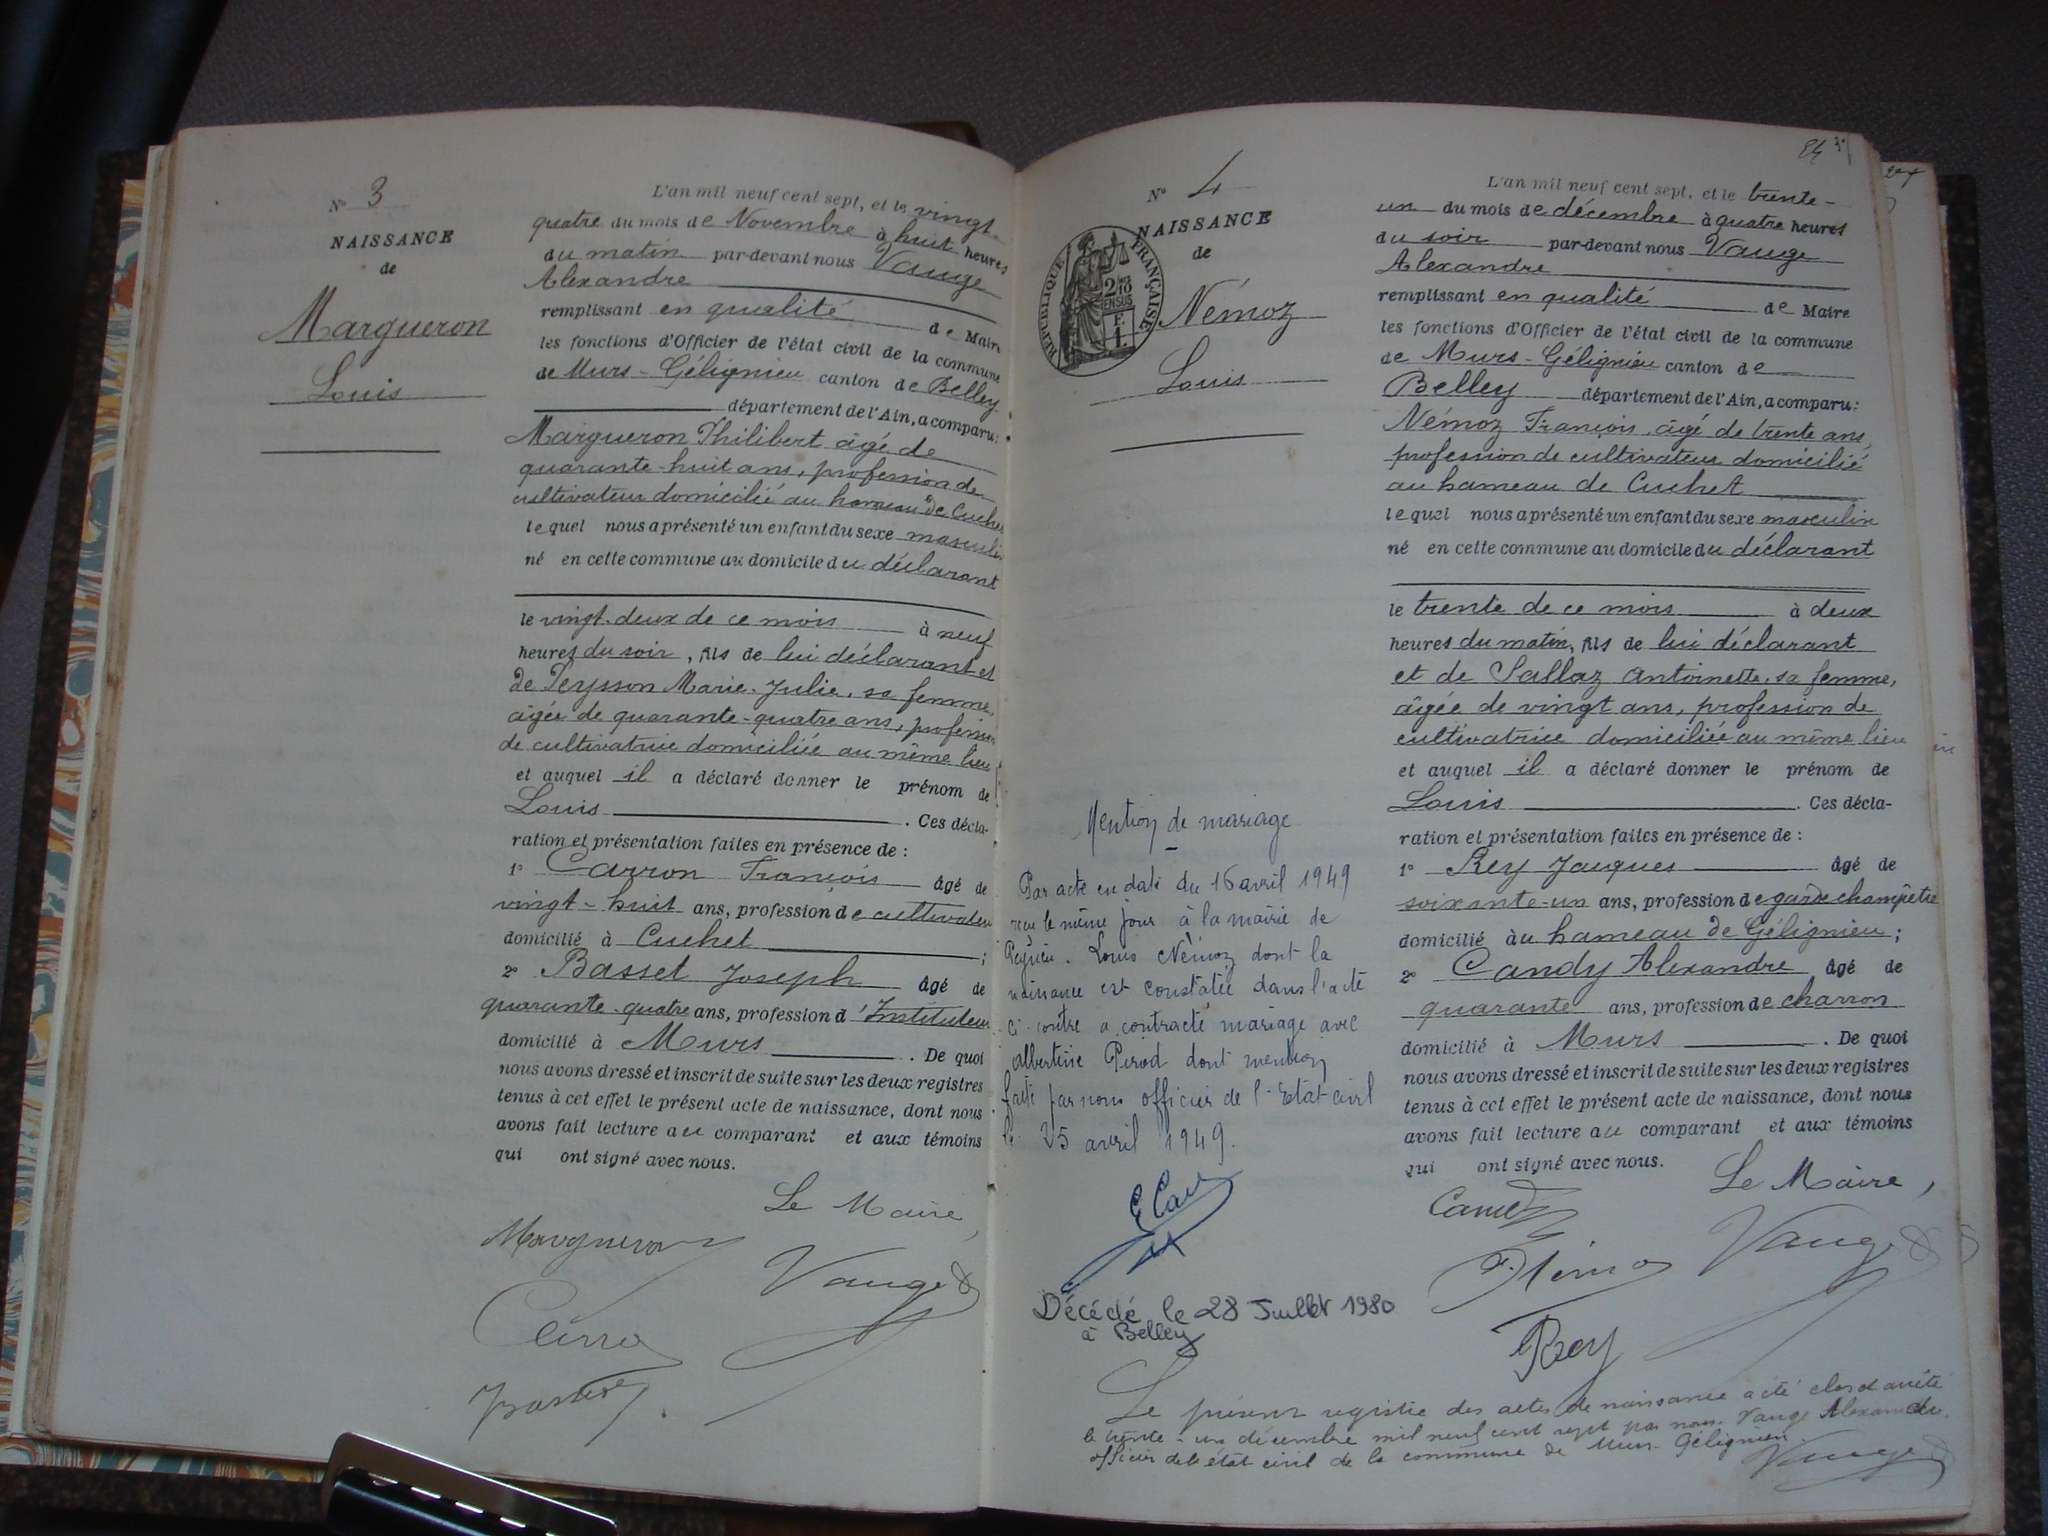 N° 3
NAISSANCE
de
Margueron
Louis
L'an mil neuf cent sept, et le vingt-
quatre du mois de Novembre à huit heures
du matin par-devant nous Vauge
Alexandre
remplissant en qualité de Maire
les fonctions d'Officier de l'état civil de la commune
de Murs-Gélignieu canton de Belley
département de l'Ain, a comparu:
Margueron Philibert âgé de
quarante-huit ans, profession de
cultivateur domicilié au hameau de Cuchet
le quel nous a présenté un enfant du sexe masculin
né en cette commune au domicile du déclarant
le vingt-deux de ce mois à neuf
heures du soir, fils de lui déclarant et
de Peysson Marie-Julie, sa femme,
âgée de quarante-quatre ans, profession
de cultivatrice domiciliée au même lieu
et auquel il a déclaré donner le prénom de
Louis. Ces décla-
ration et présentation faites en présence de :
1° Carron François âgé de
vingt-huit ans, profession de cultivateur
domicilié à Cuchet ;
2° Basset Joseph âgé de
quarante-quatre ans, profession d'Instituteur
domicilié à Murs. De quoi
nous avons dressé et inscrit de suite sur les deux registres
tenus à cet effet le présent acte de naissance, dont nous
avons fait lecture au comparant et aux témoins
qui ont signé avec nous.
Le Maire,
Margueron
Vauge
84
N° 4
NAISSANCE
de
RÉPUBLIQUE FRANÇAISE
Némoz
Louis
L'an mil neuf cent sept, et le trente-
un du mois de décembre à quatre heures
du soir par-devant nous Vauge
Alexandre
remplissant en qualité de Maire
les fonctions d'Officier de l'état civil de la commune
de Murs-Gélignieu canton de
Belley département de l'Ain, a comparu:
Némoz François, âgé de trente ans,
profession de cultivateur domicilié
au hameau de Cuchet
le quel nous a présenté un enfant du sexe masculin
né en cette commune au domicile du déclarant
le trente de ce mois à deux
heures du matin, fils de lui déclarant
et de Sallaz Antoinette, sa femme,
âgée de vingt ans, profession de
cultivatrice domiciliée au même lieu
et auquel il a déclaré donner le prénom de
Louis. Ces décla-
ration et présentation faites en présence de :
1° Rey Jacques âgé de
soixante-un ans, profession de garde champêtre
domicilié au hameau de Gélignieu ;
2° Candy Alexandre âgé de
quarante ans, profession de charron
domicilié à Murs. De quoi
nous avons dressé et inscrit de suite sur les deux registres
tenus à cet effet le présent acte de naissance, dont nous
avons fait lecture au comparant et aux témoins
qui ont signé avec nous.
Le Maire,
Candy
Vauge
Rey
Mention de mariage
Par acte en date du 16 avril 1949
reçu le même jour à la mairie de
Peyrieu. Louis Némoz dont la
naissance est constatée dans l'acte
ci-contre a contracté mariage avec
Albertine Pérod dont mention
faite par nous officier de l'Etat-civil
le 25 avril 1949.
Décédé le 28 Juillet 1980
à Belley
Le présent registre des actes de naissance a été clos et arrêté
le trente-un décembre mil neuf cent sept par nous Vauge Alexandre
officier de l'état civil de la commune de Murs-Gélignieu
Vauge